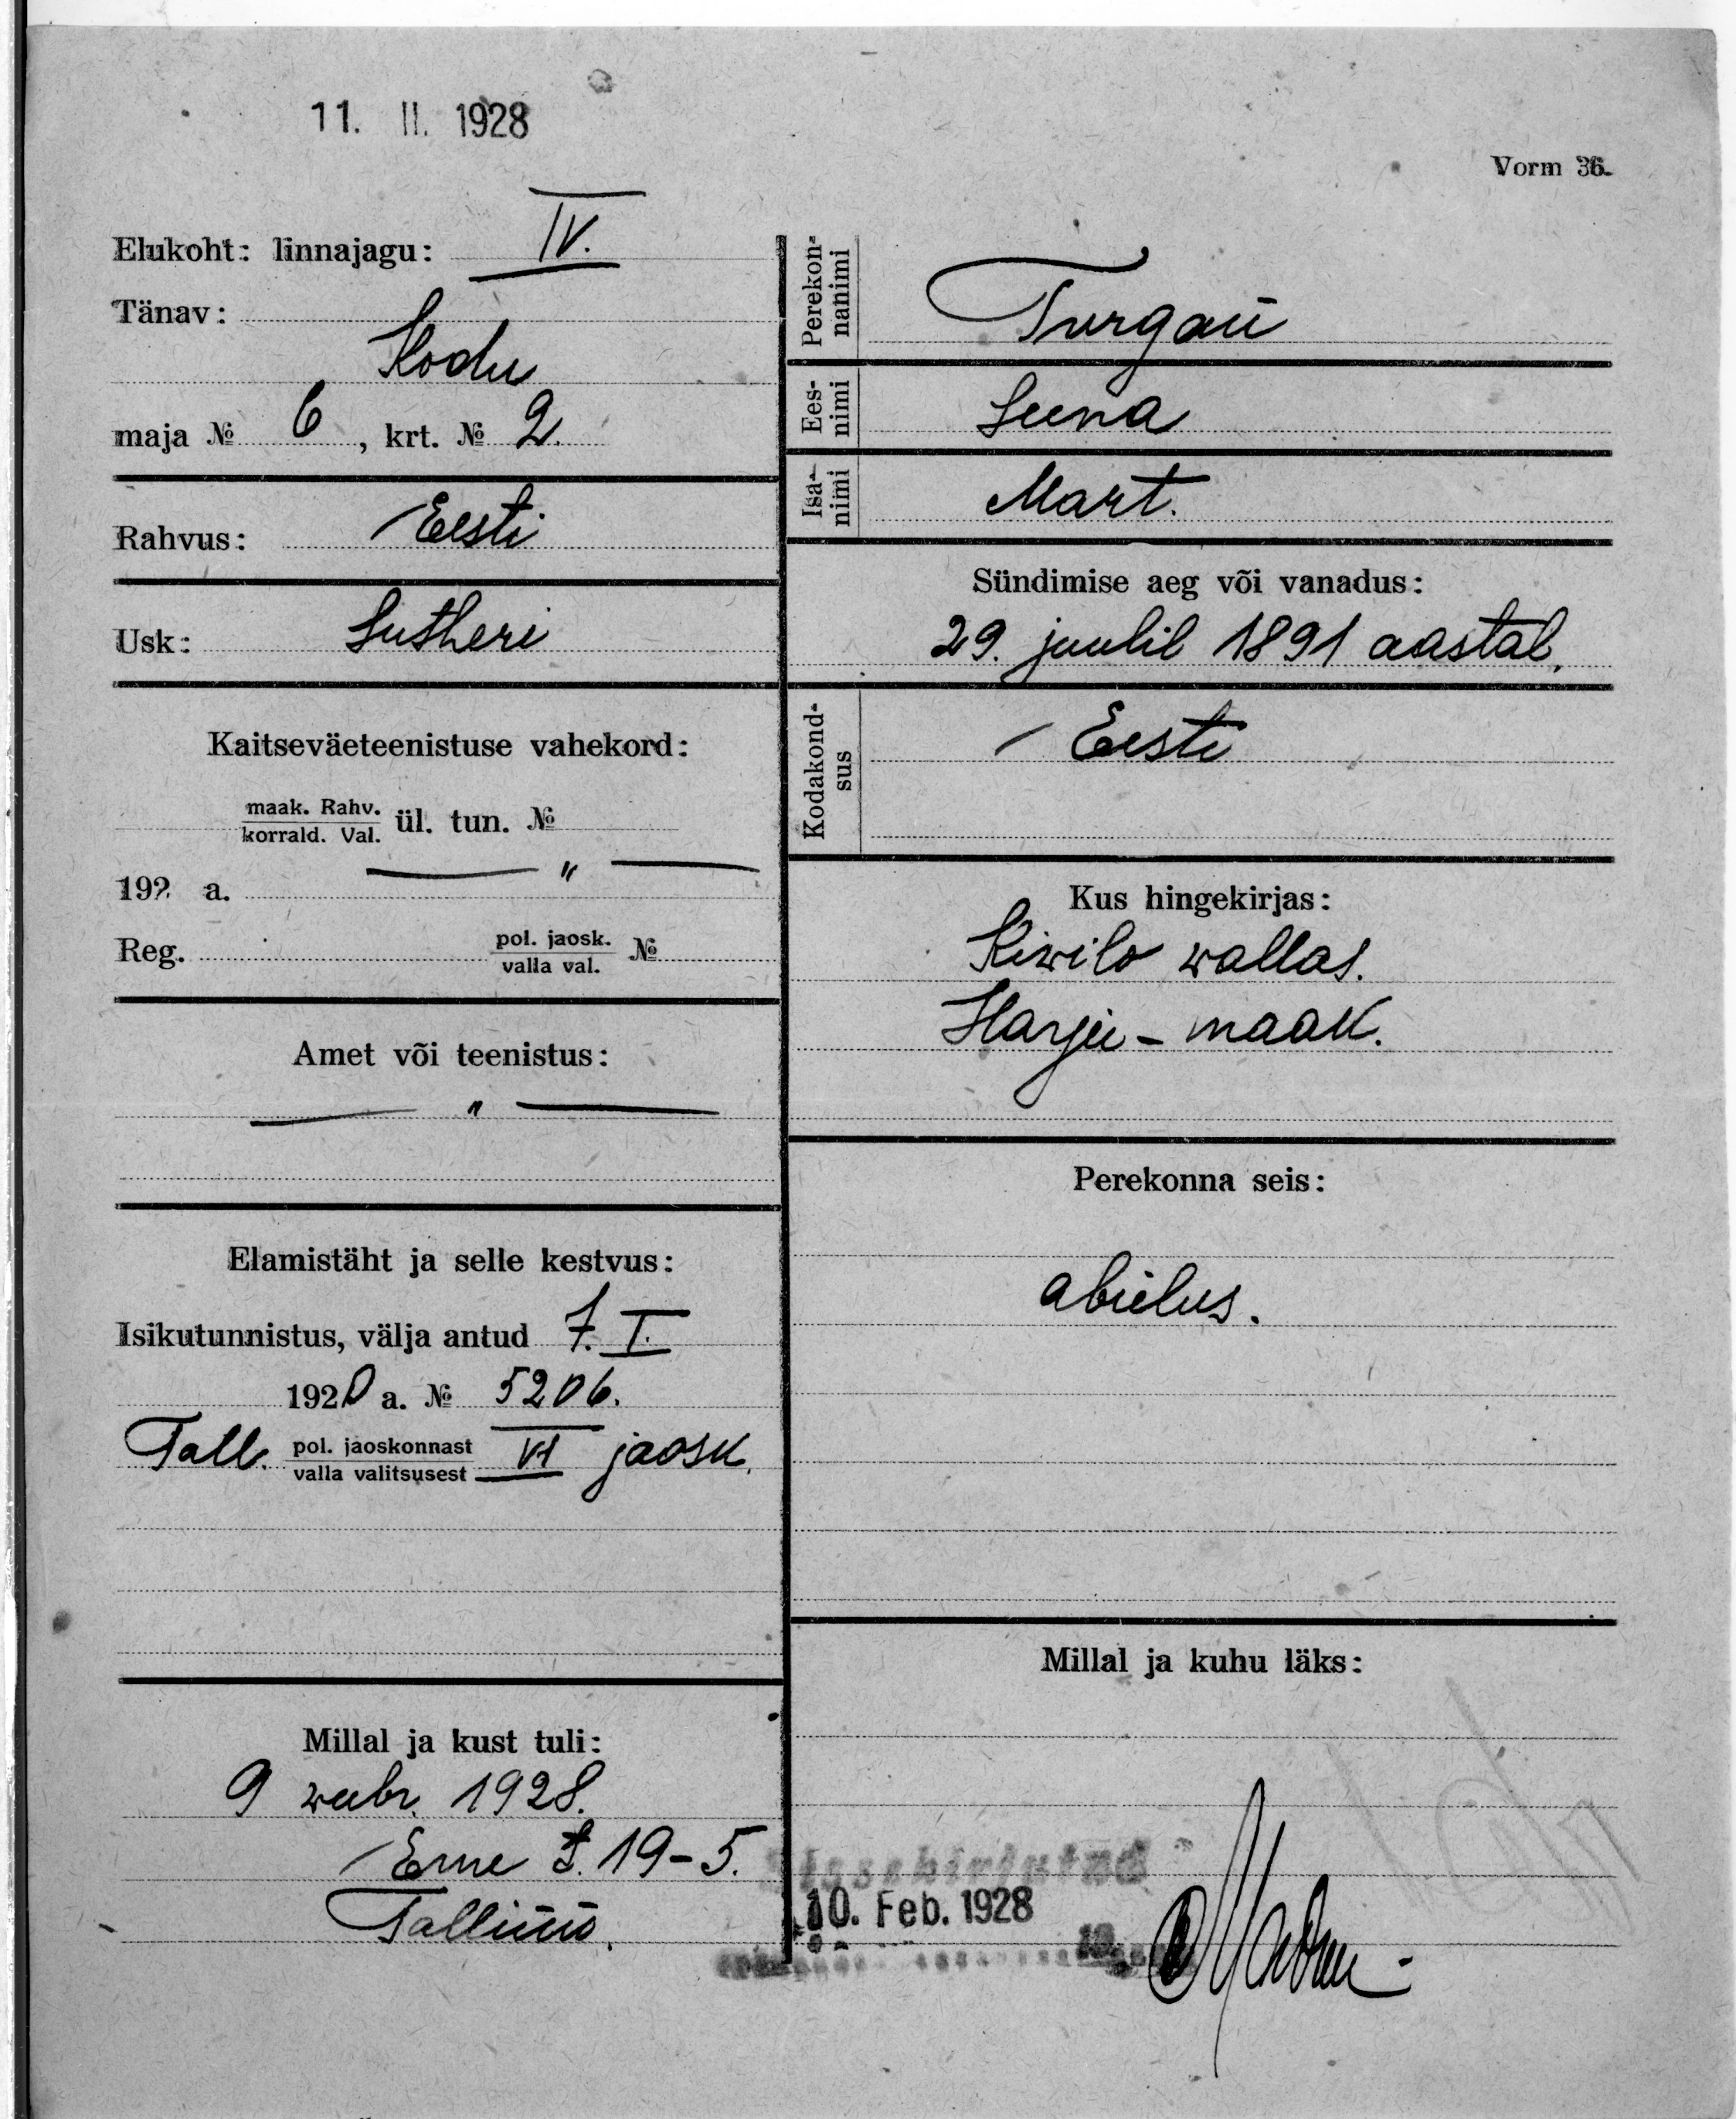 11. II. 1928
Vorm 36.
Elukoht: linnajagu: IV.
Tänav:
Kodu
maja № 6, krt. № 2.
Rahvus: Eesti
Usk: Lutheri
Kaitseväeteenistuse vahekord:
maak. Rahv.
korrald. Val. ül. tun. №
— " —
192 a.
Reg. pol. jaosk.
valla val. №
Amet või teenistus:
— " —
Elamistäht ja selle kestvus:
Isikutunnistus, välja antud 7. I.
1920 a. № 5206.
Tall. pol. jaoskonnast
valla valitsusest VI jaosk.
Millal ja kust tuli:
9 weebr. 1928.
Erne t. 19-5.
Tallinn.
Perekon-
nanimi Turgan
Ees-
nimi Leena
Isa-
nimi Mart.
Sündimise aeg või vanadus:
29. juulil 1891 aastal.
Kodakond-
sus Eesti
Kus hingekirjas:
Kiwilo wallas.
Harju-maak.
Perekonna seis:
abielus.
Millal ja kuhu läks:
Sissekirjutud
10. Feb. 1928